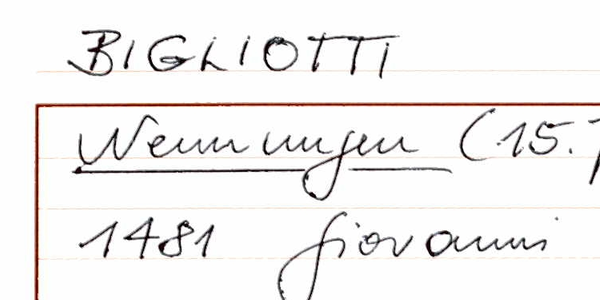 BIGLIOTTI
Nennungen (15.
1481 Giovanni